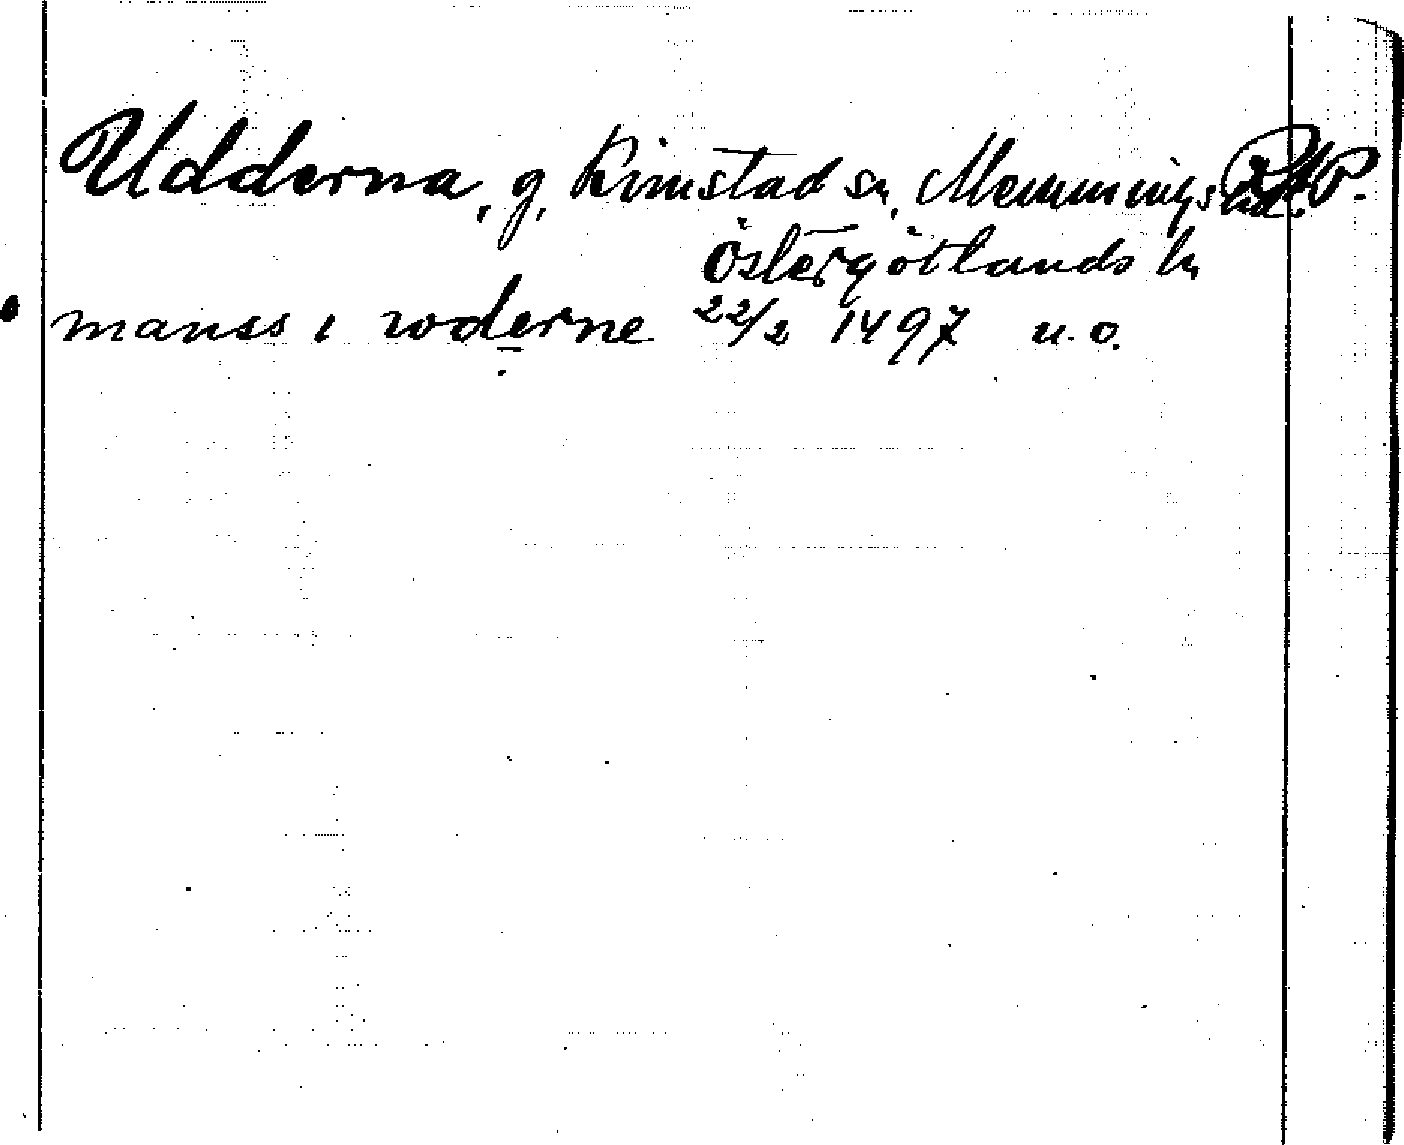 Udderna, g, Kimstad sn, Memmings hd. RAP.
Östergötlands ln
manss i woderne 22/2 1497 u. o.